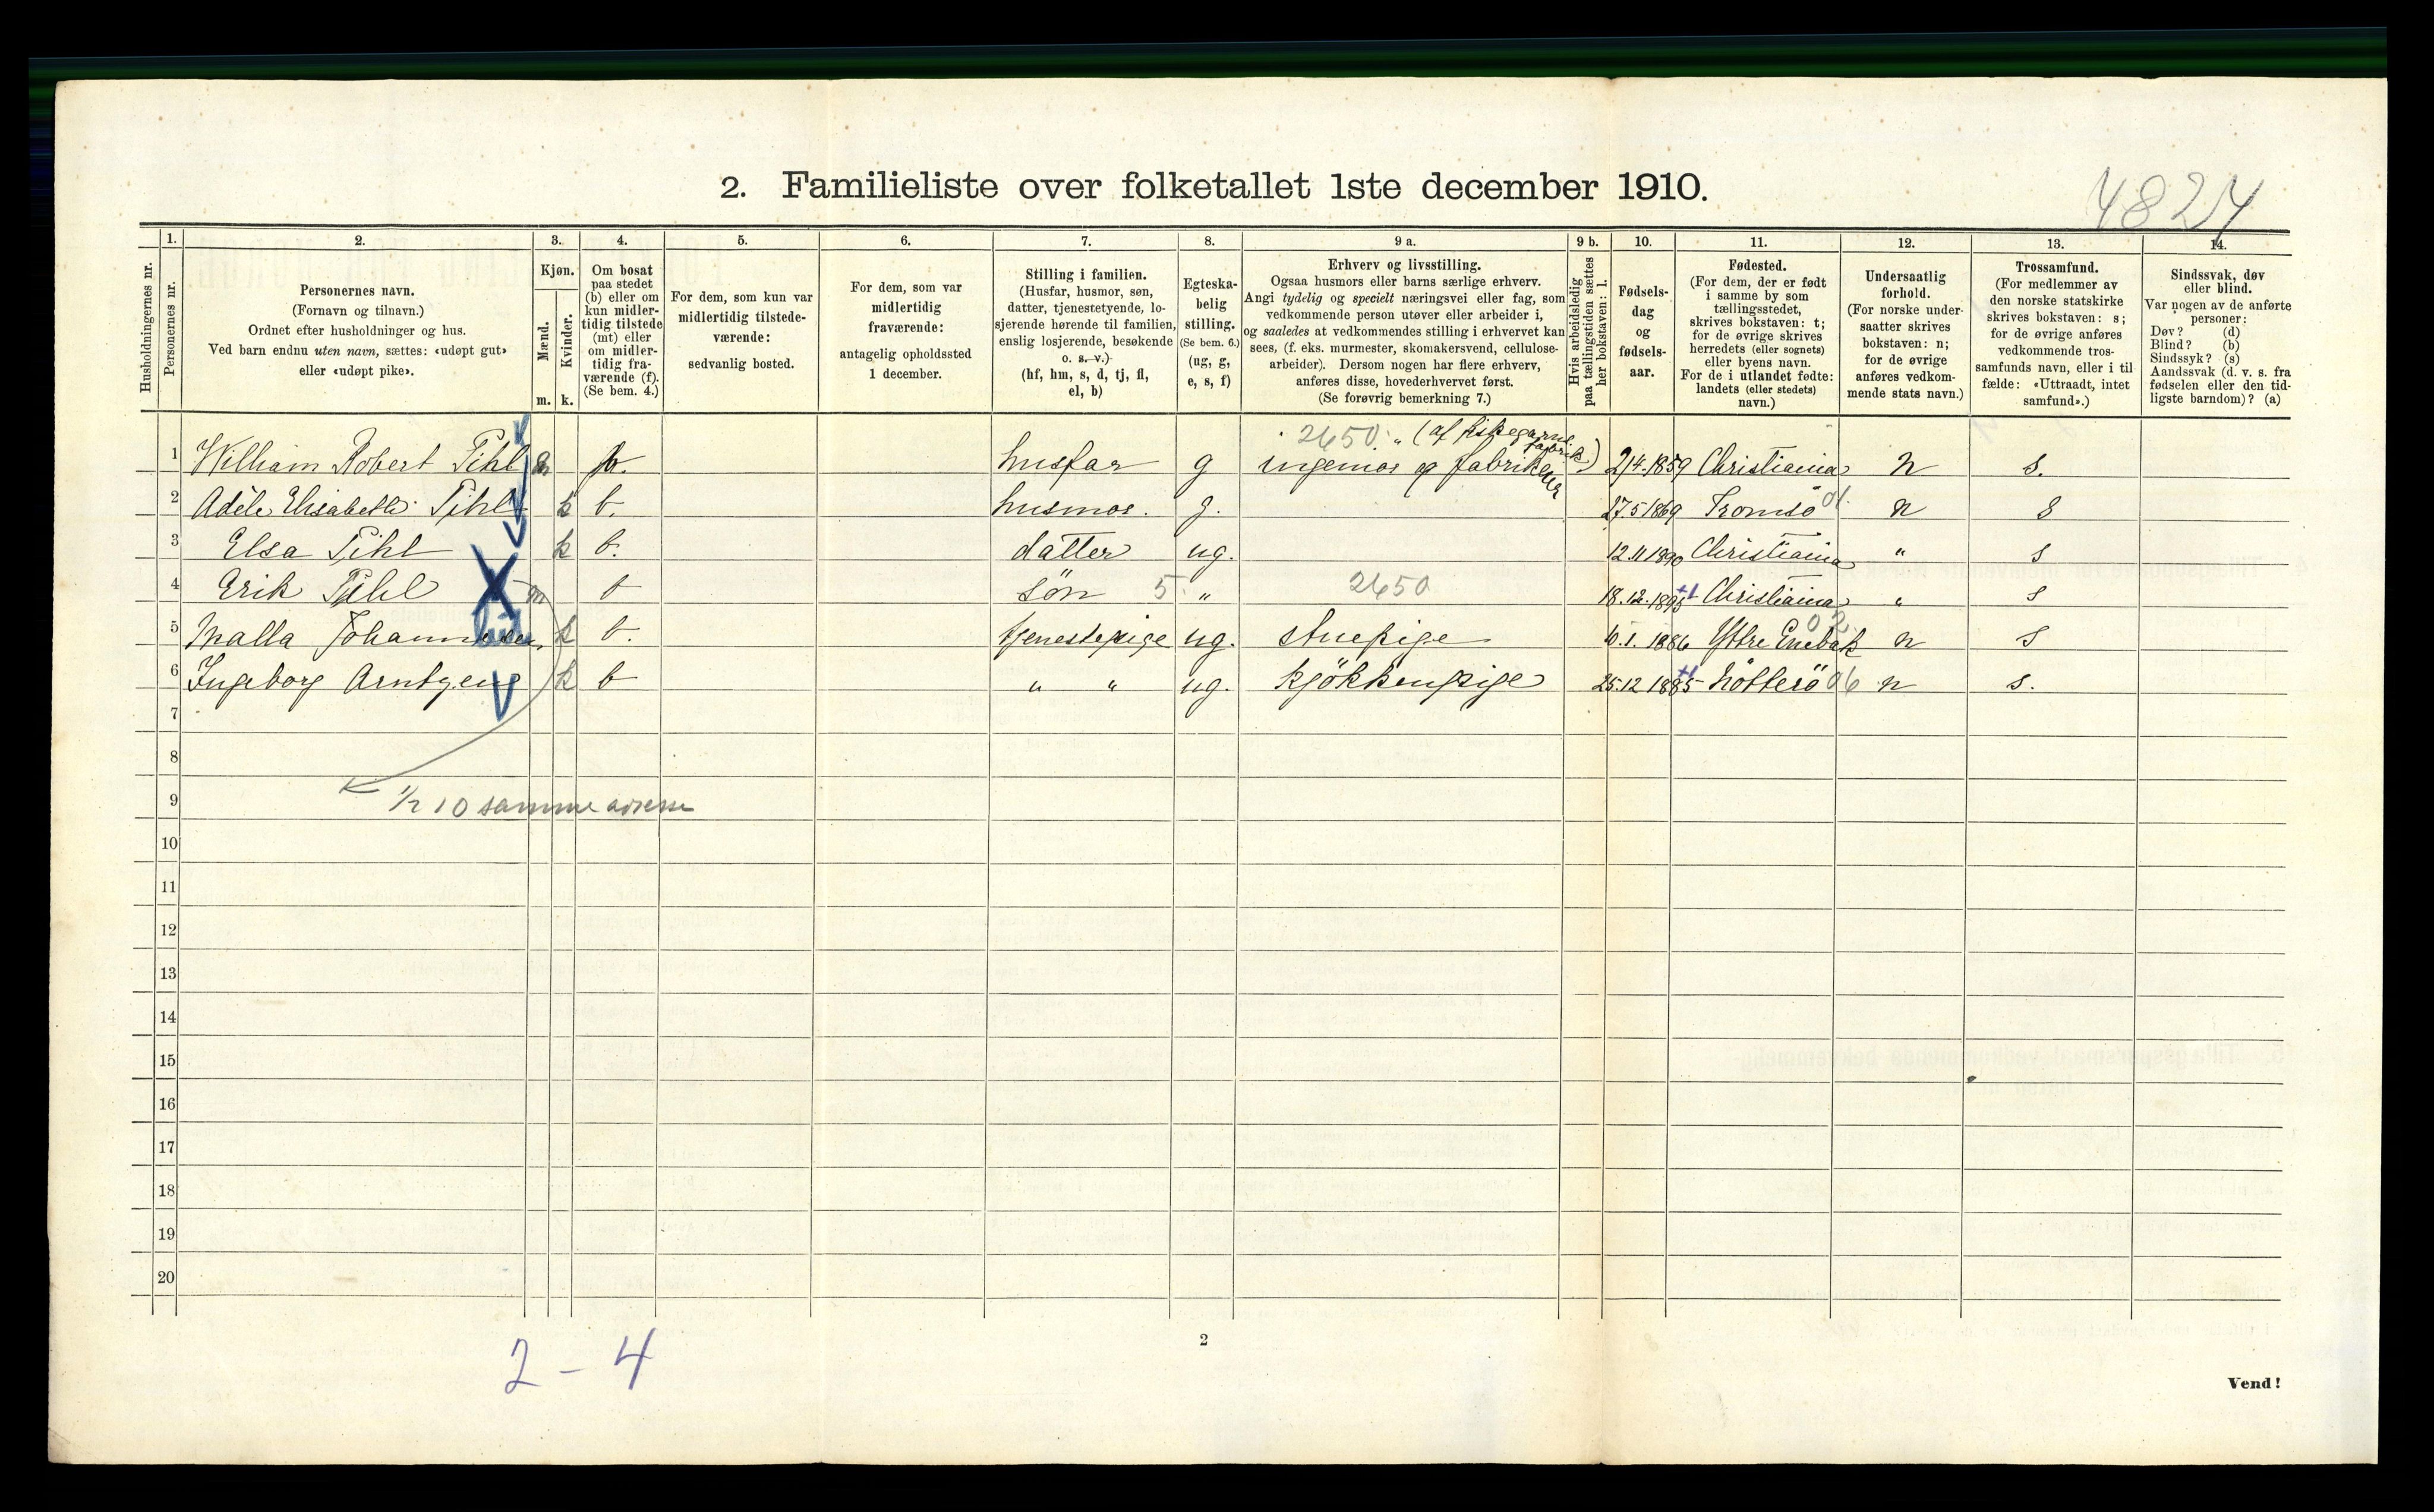 2. Familieliste over folketallet 1ste december 1910.
4824
Husholdningernes nr.
1. Personernes nr.
2. Personernes navn.
(Fornavn og tilnavn.)
Ordnet efter husholdninger og hus.
Ved barn endnu uten navn, sættes: «udøpt gut»
eller «udøpt pike».
3. Kjøn.
Mænd. m.
Kvinder. k.
4. Om bosat
paa stedet
(b) eller om
kun midler-
tidig tilstede
(mt) eller
om midler-
tidig fra-
værende (f).
(Se bem. 4.)
5. For dem, som kun var
midlertidig tilstede-
værende:
sedvanlig bosted.
6. For dem, som var
midlertidig
fraværende:
antagelig opholdssted
1 december.
7. Stilling i familien.
(Husfar, husmor, søn,
datter, tjenestetyende, lo-
sjerende hørende til familien,
enslig losjerende, besøkende
o. s. v.)
(hf, hm, s, d, tj, fl,
el, b)
8. Egteska-
belig
stilling.
(Se bem. 6.)
(ug, g,
e, s, f)
9 a. Erhverv og livsstilling.
Ogsaa husmors eller barns særlige erhverv.
Angi tydelig og specielt næringsvei eller fag, som
vedkommende person utøver eller arbeider i,
og saaledes at vedkommendes stilling i erhvervet kan
sees, (f. eks. murmester, skomakersvend, cellulose-
arbeider). Dersom nogen har flere erhverv,
anføres disse, hovederhvervet først.
(Se forøvrig bemerkning 7.)
9 b. Hvis arbeidsledig
paa tællingstiden sættes
her bokstaven: l.
10. Fødsels-
dag
og
fødsels-
aar.
11. Fødested.
(For dem, der er født
i samme by som
tællingsstedet,
skrives bokstaven: t;
for de øvrige skrives
herredets (eller sognets)
eller byens navn.
For de i utlandet fødte:
landets (eller stedets)
navn.)
12. Undersaatlig
forhold.
(For norske under-
saatter skrives
bokstaven: n;
for de øvrige
anføres vedkom-
mende stats navn.)
13. Trossamfund.
(For medlemmer av
den norske statskirke
skrives bokstaven: s;
for de øvrige anføres
vedkommende tros-
samfunds navn, eller i til
fælde: «Uttraadt, intet
samfund».)
14. Sindssvak, døv
eller blind.
Var nogen av de anførte
personer:
Døv? (d)
Blind? (b)
Sindssyk? (s)
Aandssvak (d. v. s. fra
fødselen eller den tid-
ligste barndom)? (a)
2650 " (af fiskegarns fabrik)
1 William Robert Pihl m b. husfar g ingeniør og fabrikeier 21/4-1859 Christiania n s.
2 Adèle Elisabeth Pihl k b. husmor. g. 27.5 1869 Tromsö 01. n s
3 Elsa Pihl k b. datter ug. 12.11 1890 Christiania " s
4 Erik Pihl m b sön 5 " 2650 18.12.1895 +1 Christiania " s
5 Malla Johannesen k b. tjenestepige ug. stuepige 10.1.1886 Yttre Enebak 02. n s
6 Ingeborg Arntzen k b " " ug. kjökkenpige 25.12 1885 +1 Nötterö 06 n s.
7
8
9 1/12 10 samme adresse
10
11
12
13
14
15
16
17
18
19
20
2 - 4
2
Vend!